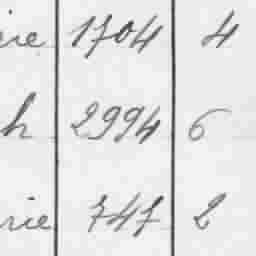 ire 1704 4
h 2994 6
rie 747 2